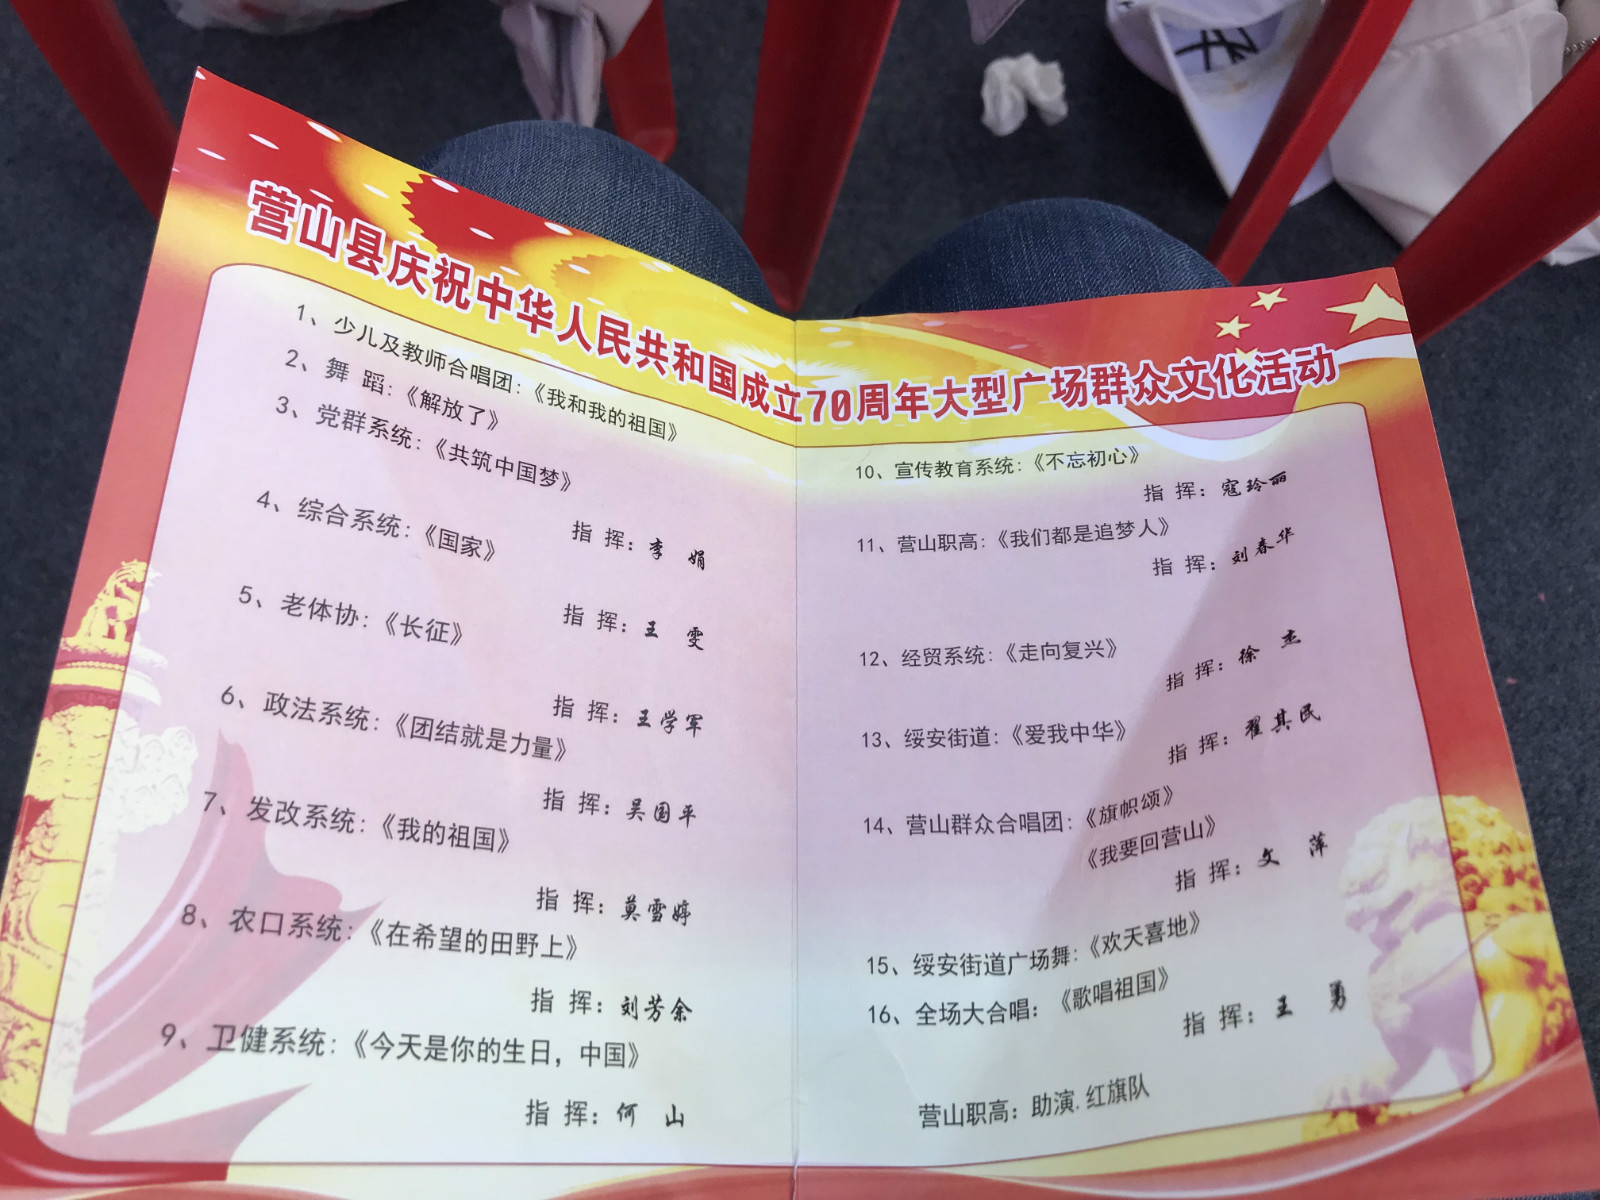 营山县庆祝中华人民共和国成立70周年大型广场群众文化活动
1、少儿及教师合唱团：《我和我的祖国》
2、舞 蹈：《解放了》
3、党群系统：《共筑中国梦》
指 挥：李 娟
4、综合系统：《国家》
指 挥：王 雯
5、老体协：《长征》
指 挥：王学军
6、政法系统：《团结就是力量》
指 挥：吴国平
7、发改系统：《我的祖国》
指 挥：莫雪婷
8、农口系统：《在希望的田野上》
指 挥：刘芳余
9、卫健系统：《今天是你的生日，中国》
指 挥：何 山
10、宣传教育系统：《不忘初心》
指 挥：寇玲丽
11、营山职高：《我们都是追梦人》
指 挥：刘春华
12、经贸系统：《走向复兴》
指 挥：徐 杰
13、绥安街道：《爱我中华》
指 挥：翟其民
14、营山群众合唱团：《旗帜颂》
《我要回营山》
指 挥：文 萍
15、绥安街道广场舞：《欢天喜地》
16、全场大合唱：《歌唱祖国》
指 挥：王 勇
营山职高：助演.红旗队